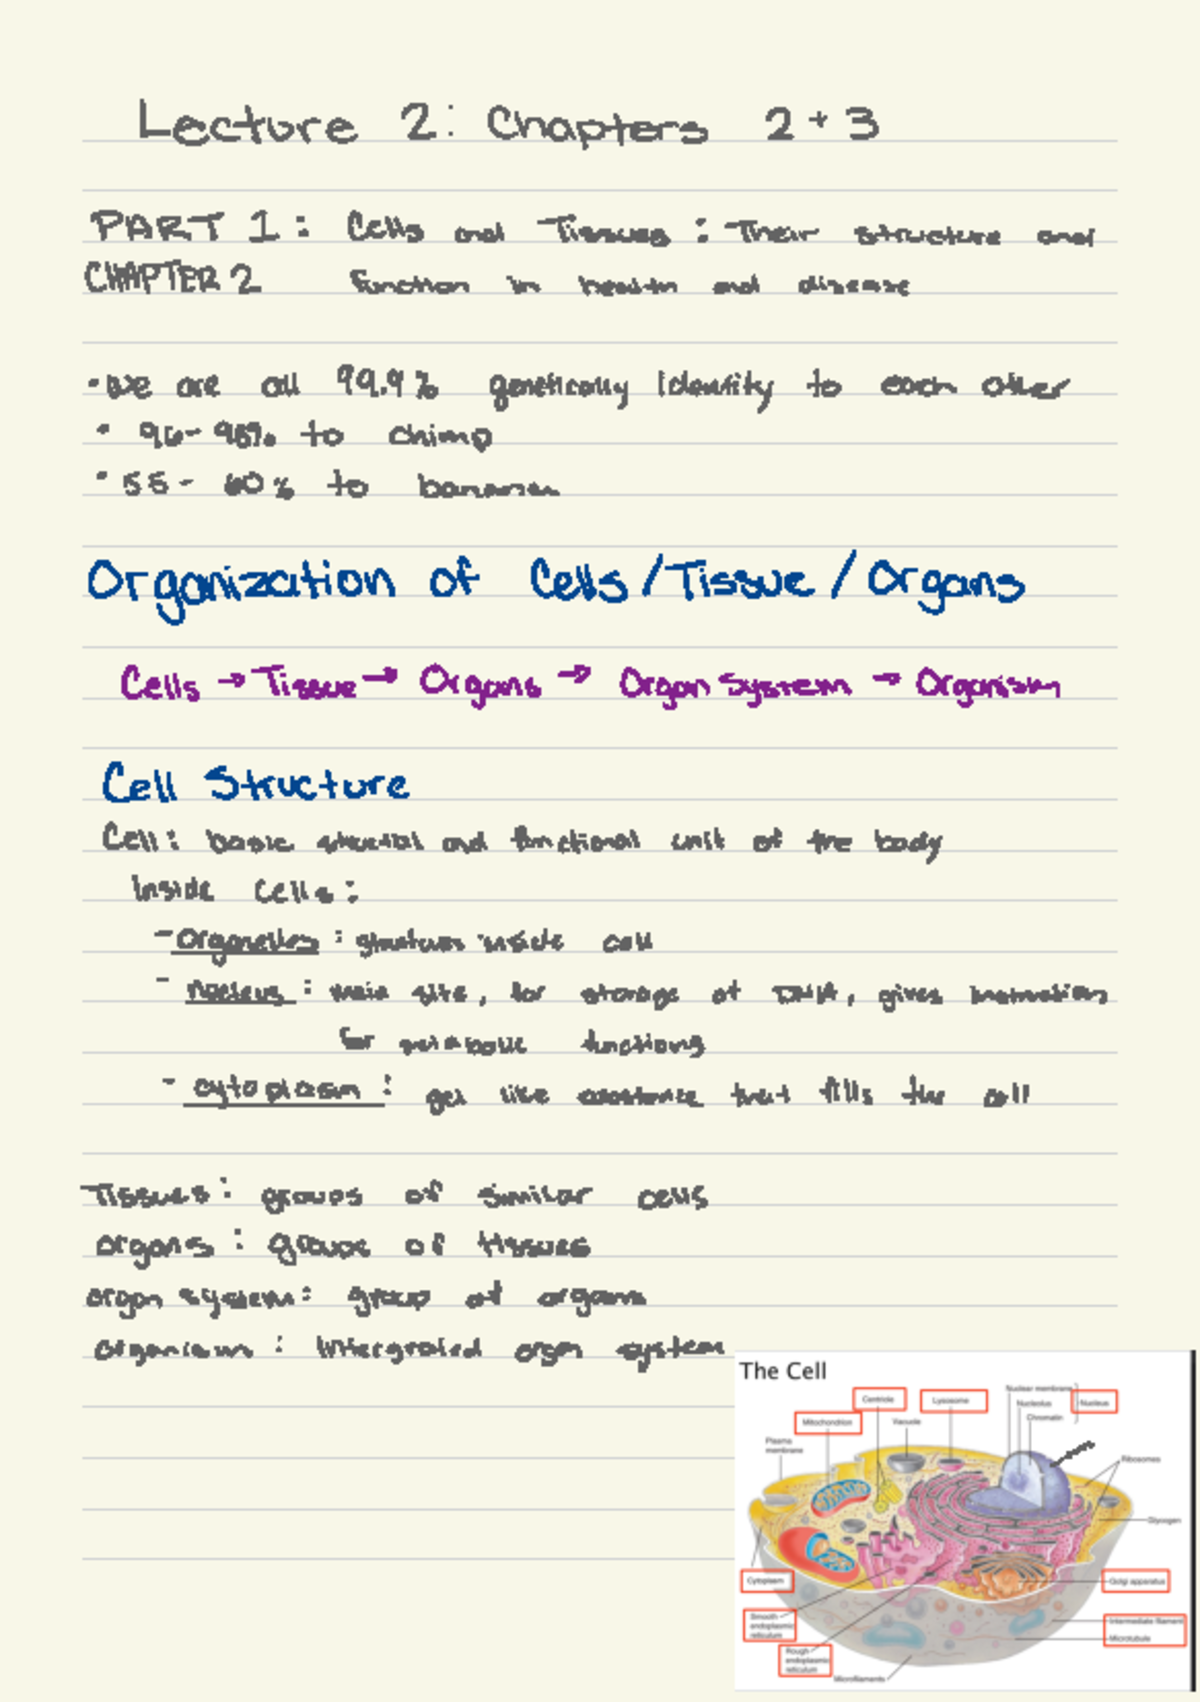 Lecture 2: Chapters 2 + 3
PART 1: Cells and Tissues: Their structure and
CHAPTER 2 function in health and disease
• We are all 99.9% genetically identity to each other
• 96-98% to chimp
• 55-60% to bananas
Organization of Cells/Tissue/Organs
Cells → Tissue → Organs → Organ System → Organism
Cell Structure
Cell: basic and functional unit of the body
Inside Cells:
- Organelles: structures inside cell
- nucleus: main site, for storage of DNA, gives
for metabolic functions
- cytoplasm: gel like that fills the cell
Tissues: groups of similar cells
organs: groups of tissues
organ system: group of organs
organism: Intergrated organ system
The Cell
Nuclear membrane
Centriole
Lysosome
Nucleolus
Nucleus
Mitochondrion
Vacuole
Chromatin
Plasma
membrane
Ribosomes
Glycogen
Cytoplasm
Golgi apparatus
Smooth
endoplasmic
reticulum
Intermediate filament
Microtubule
Rough
endoplasmic
reticulum
Microfilaments